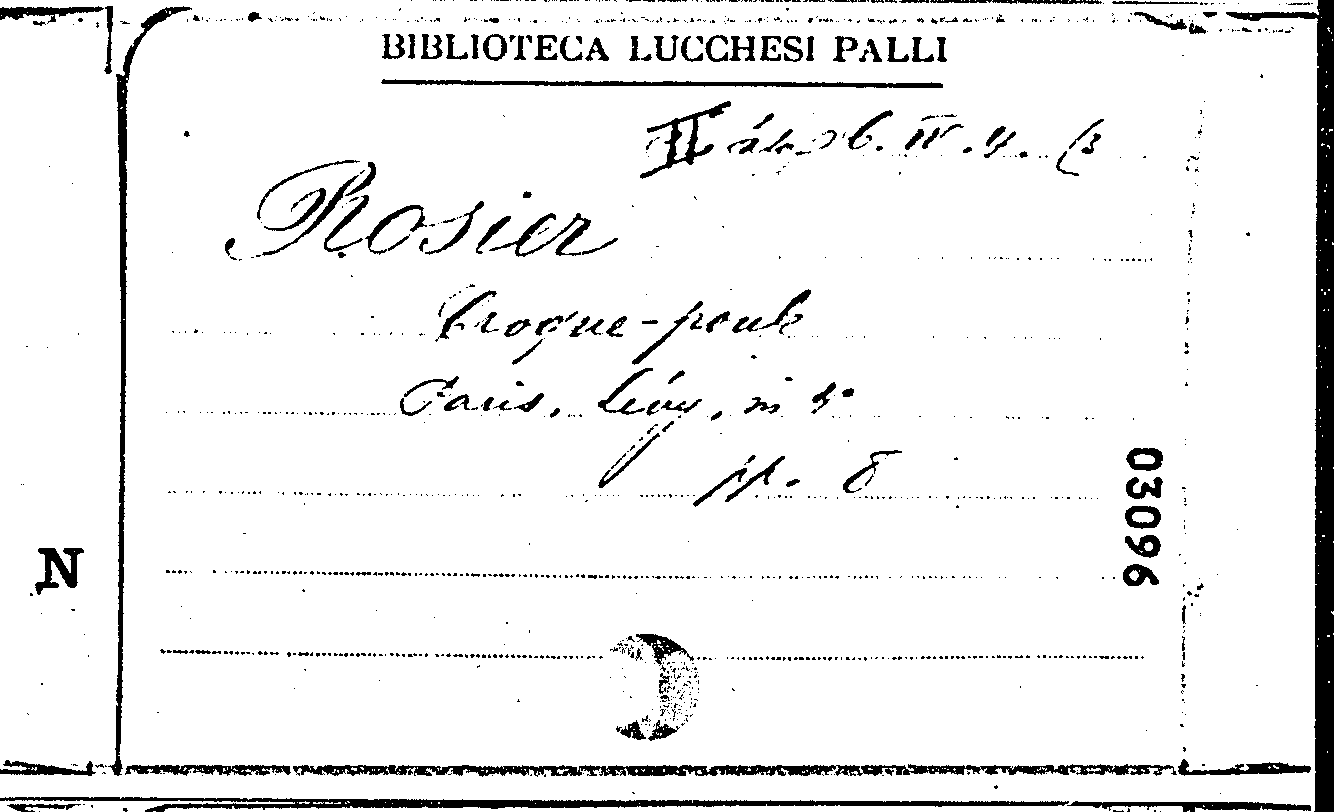 BIBLIOTECA LUCCHESI PALLI
II 26. IV. 4. (3
Rosier
Croque-poule
Paris, Lévy, in 4°
pp. 8
03096
N